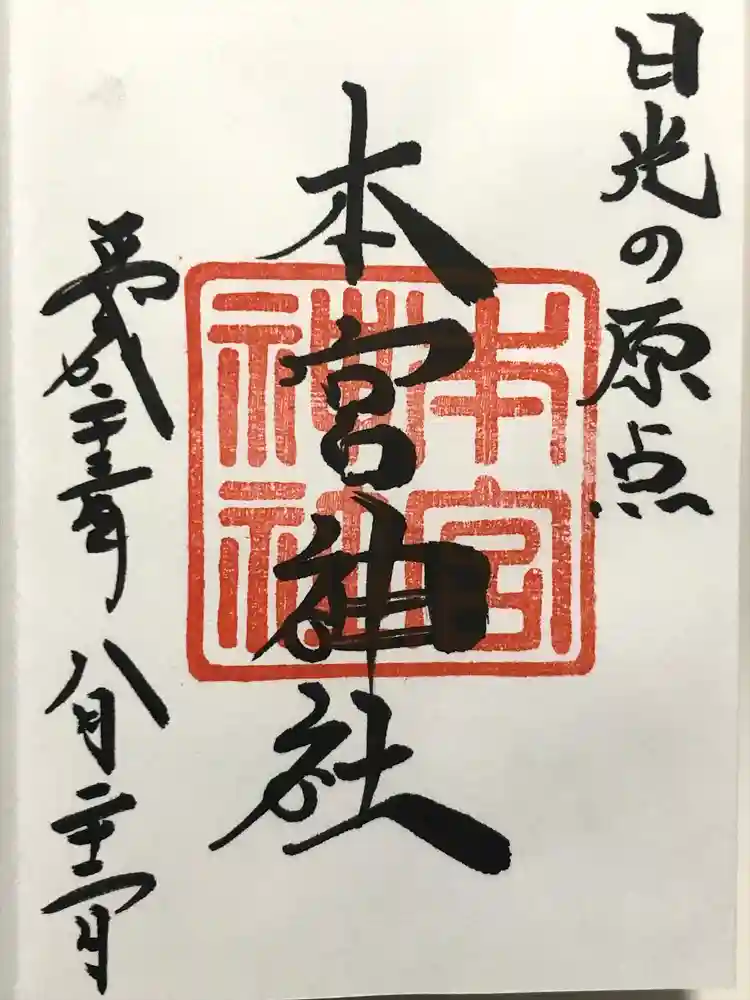 日光の原点
本宮神社
本宮
神社
平成二十年
八月二十日